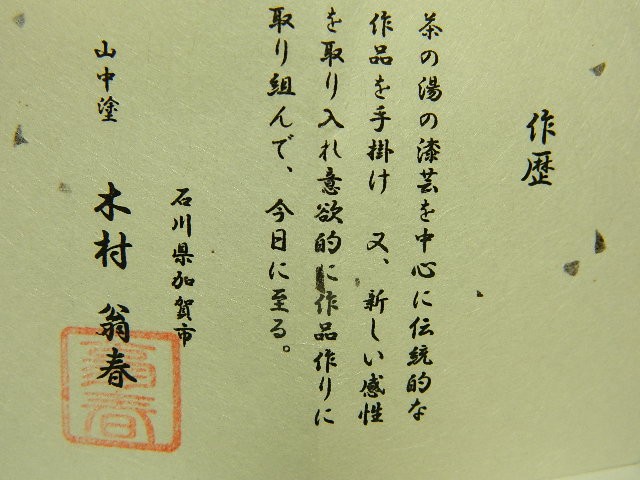 作歴
茶の湯の漆芸を中心に伝統的な
作品を手掛け 又、新しい感性
を取り入れ意欲的に作品作りに
取り組んで、今日に至る。
石川県加賀市
山中塗 木村 翁春
翁春